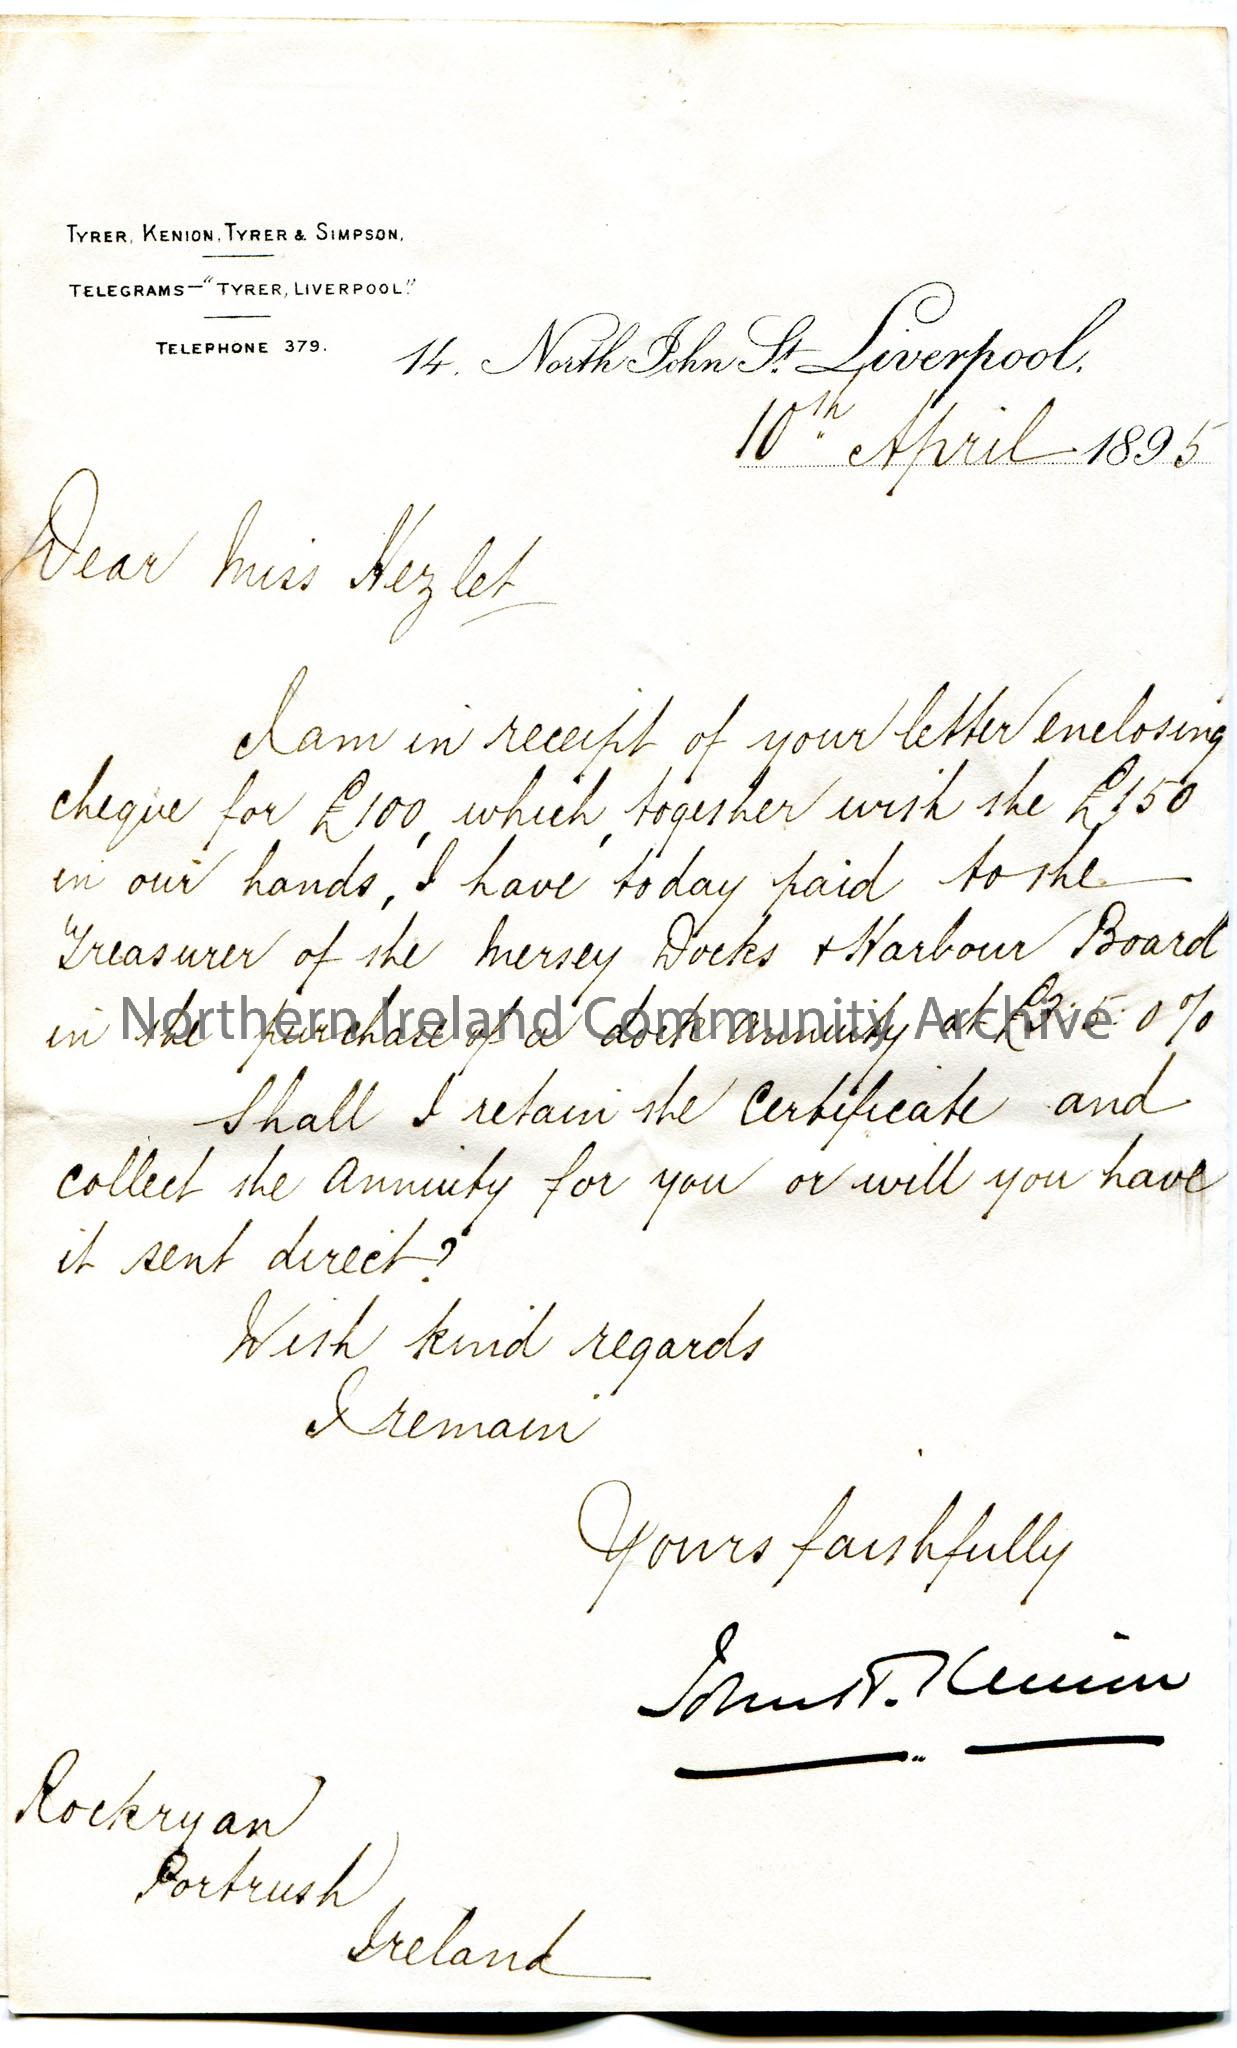 TYRER, KENION, TYRER & SIMPSON,
TELEGRAMS—"TYRER, LIVERPOOL."
TELEPHONE 379.
14. North John St. Liverpool.
10th April 1895
Dear Miss Hezlet
I am in receipt of your letter enclosing
cheque for £100, which, together with the £150
in our hands, I have today paid to the
Treasurer of the Mersey Docks & Harbour Board
in the purchase of a dock annuity at £3.5.0%
Northern Ireland Community Archive
Shall I retain the Certificate and
collect the annuity for you or will you have
it sent direct?
With kind regards
I remain
Yours faithfully
John Kenion
Rockryan
Portrush
Ireland